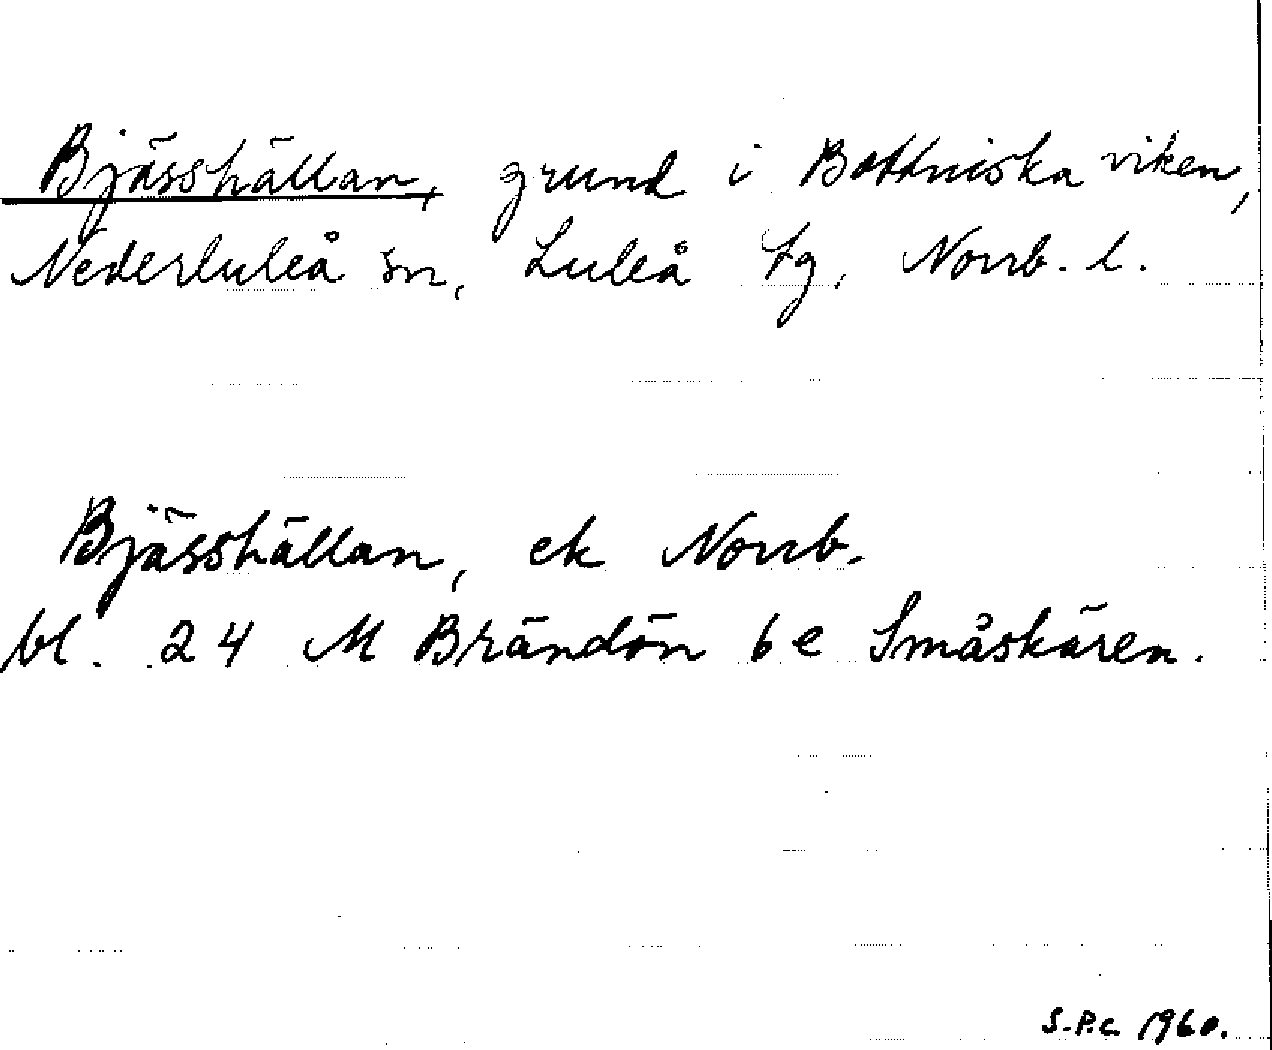 Bjässhällan, grund i Bottniska viken,
Nederluleå sn, Luleå tg, Norrb. l.
Bjässhällan, ek Norrb.
bl. 24 M Brändön 6 e Småskären.
S.P.C. 1960.